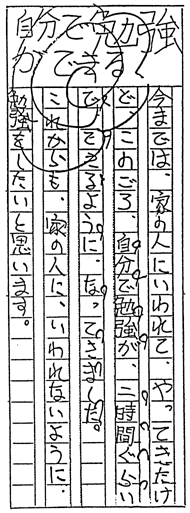 自分で勉強
ができる
今までは、家の人にいわれて、やってきたけ
ど、このごろ、自分で勉強が、三時間ぐらい
で、できるように、なってきました。
これからも、家の人に、いわれないように、
勉強をしたいと思います。